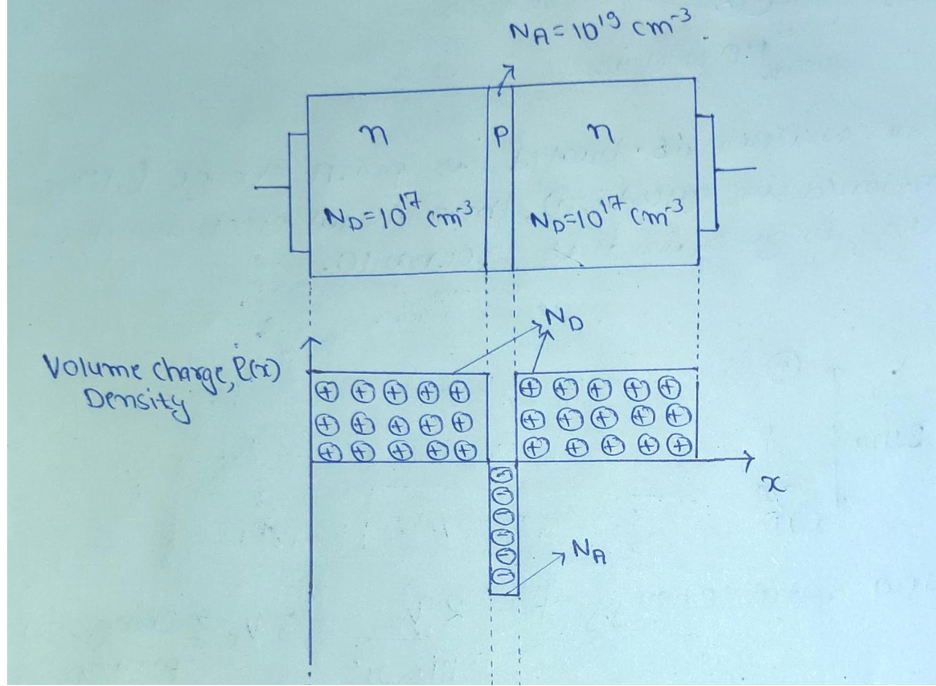 N_A = 10^19 cm^-3.
n
P
n
N_D = 10^17 cm^-3
N_D = 10^17 cm^-3
N_D
Volume charge, ρ(x)
Density
x
N_A